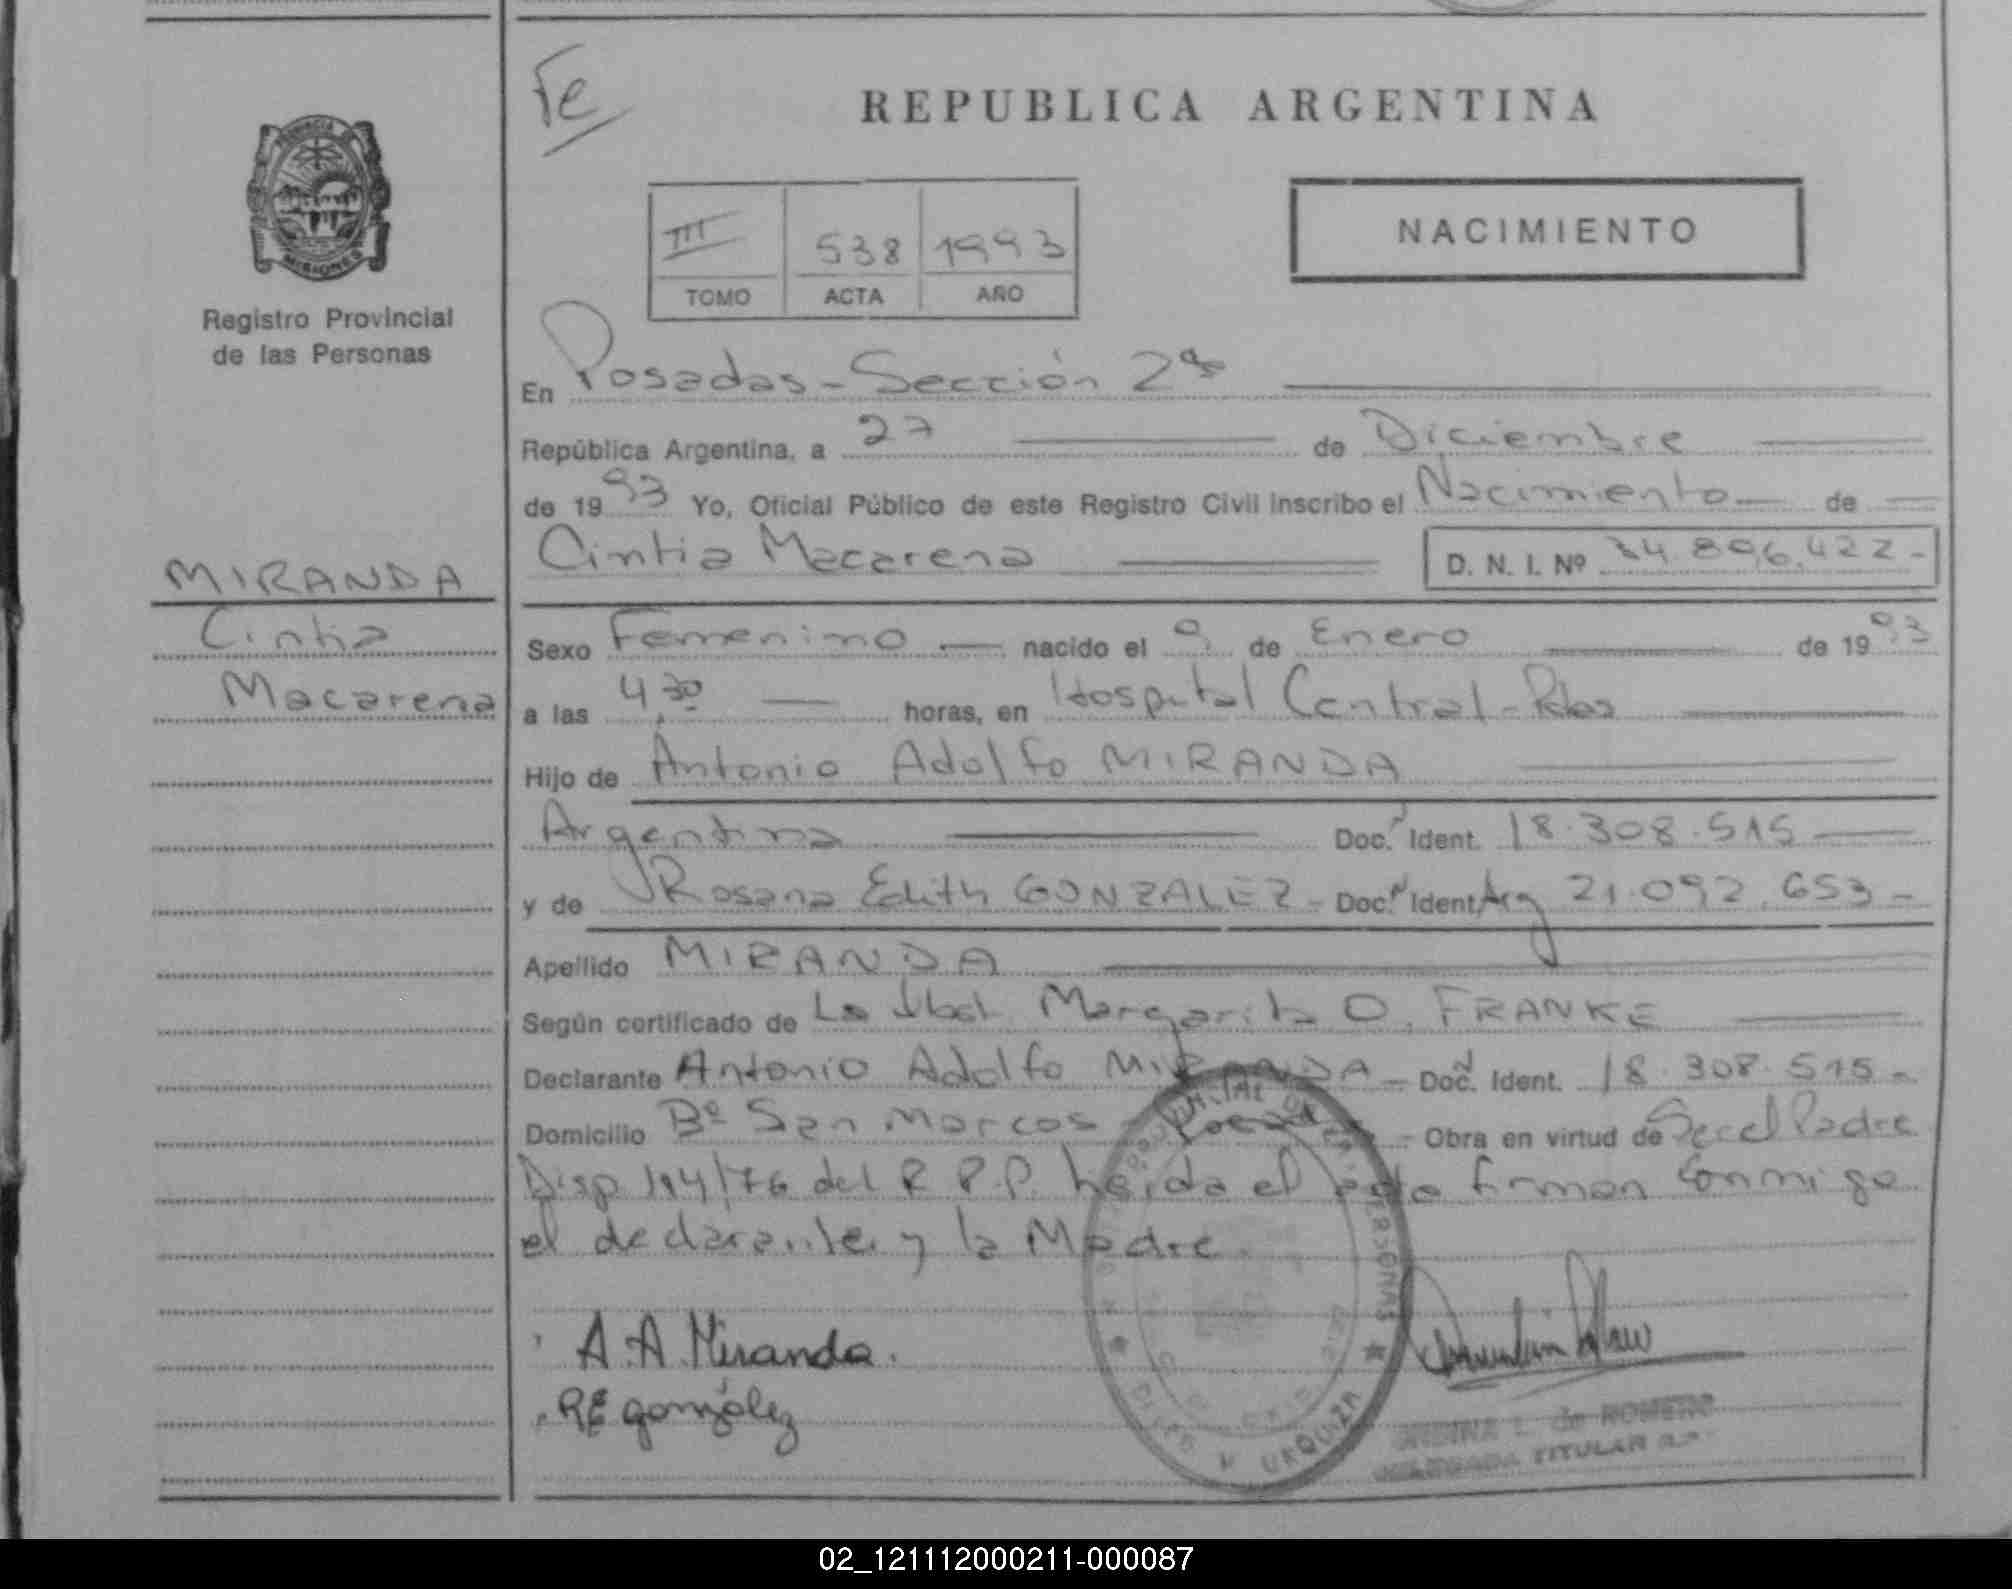 Fe
REPUBLICA ARGENTINA
PROVINCIA DE
MISIONES
Registro Provincial
de las Personas
III 538 1993
TOMO ACTA AÑO
NACIMIENTO
En Posadas - Sección 2ª
República Argentina, a 27 de Diciembre
de 1993 Yo, Oficial Público de este Registro Civil inscribo el Nacimiento de
Cintia Macarena D. N. I. Nº 34.896.422-
MIRANDA
Cintia
Macarena
Sexo Femenino nacido el 9 de Enero de 1993
a las 4,30 horas, en Hospital Central - Pdas
Hijo de Antonio Adolfo MIRANDA
Argentina Doc. Ident. 18.308.515
y de Rosana Edith GONZALEZ - Doc. Ident. Arg 21.092.653 -
Apellido MIRANDA
Según certificado de La Obst. Margarita O. FRANKE
Declarante Antonio Adolfo MIRANDA - Doc. Ident. 18.308.515 -
Domicilio Bº San Marcos - Posadas - Obra en virtud de Ser el Padre
Disp 194/76 del R.P.P. Leida el acta firman conmigo
el declarante y la Madre
A.A. Miranda.
RE gonzález
PROVINCIAL DE LAS PERSONAS
URQUIZA
L. de ROMERO
DELEGADA TITULAR
02_121112000211-000087